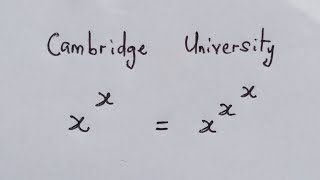 Cambridge University
x^x = x^x^x